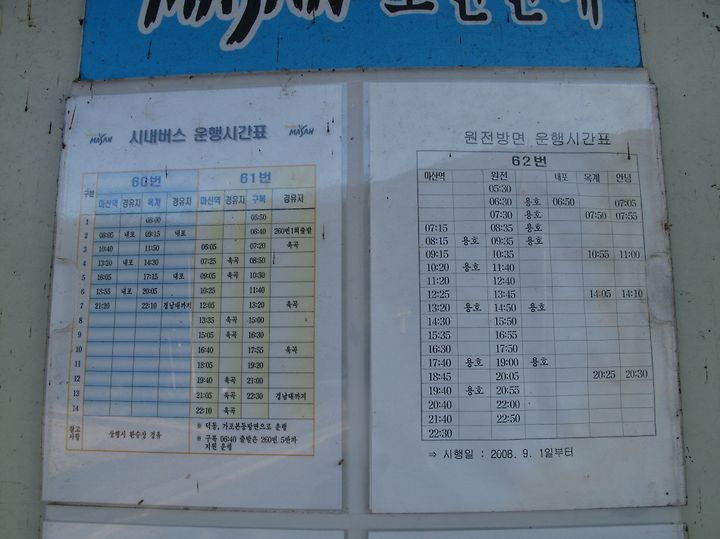 MASAN
MASAN 시내버스 운행시간표 MASAN
구분 60번 61번
마산역 경유지 옥계 경유지 마산역 경유지 구복 경유지
1 06:00 05:50
2 08:05 내포 09:15 내포 06:40 260번1회출발
3 10:40 11:50 06:05 07:20 욱곡
4 13:20 내포 14:30 07:25 욱곡 08:50
5 16:05 17:15 내포 09:05 욱곡 10:30
6 18:55 내포 20:05 10:25 11:40
7 21:20 22:10 경남대까지 12:05 13:20 욱곡
8 13:35 욱곡 15:00
9 15:05 욱곡 16:30
10 16:40 17:55 욱곡
11 18:05 19:20
12 19:40 욱곡 21:00
13 21:05 욱곡 22:30 경남대까지
14 22:10 욱곡
참고사항 상행시 환승장 경유
※ 덕동, 가포본동방면으로 운행
※ 구복 06:40 출발은 260번 5번차
지원 운행
원전방면 운행시간표
62번
마산역 원전 내포 옥계 안녕
05:30
06:30 용호 06:50 07:05
07:30 용호 07:50 07:55
07:15 08:35 용호
08:15 용호 09:35 용호
09:15 10:35 10:55 11:00
10:20 용호 11:40
11:20 12:40
12:25 13:45 14:05 14:10
13:20 용호 14:50 용호
14:30 15:50
15:35 16:55
16:30 17:50
17:40 용호 19:00 용호
18:45 20:05 20:25 20:30
19:40 용호 20:55
20:40 22:00
21:40 22:50
22:30
⇒ 시행일 : 2008. 9. 1일부터